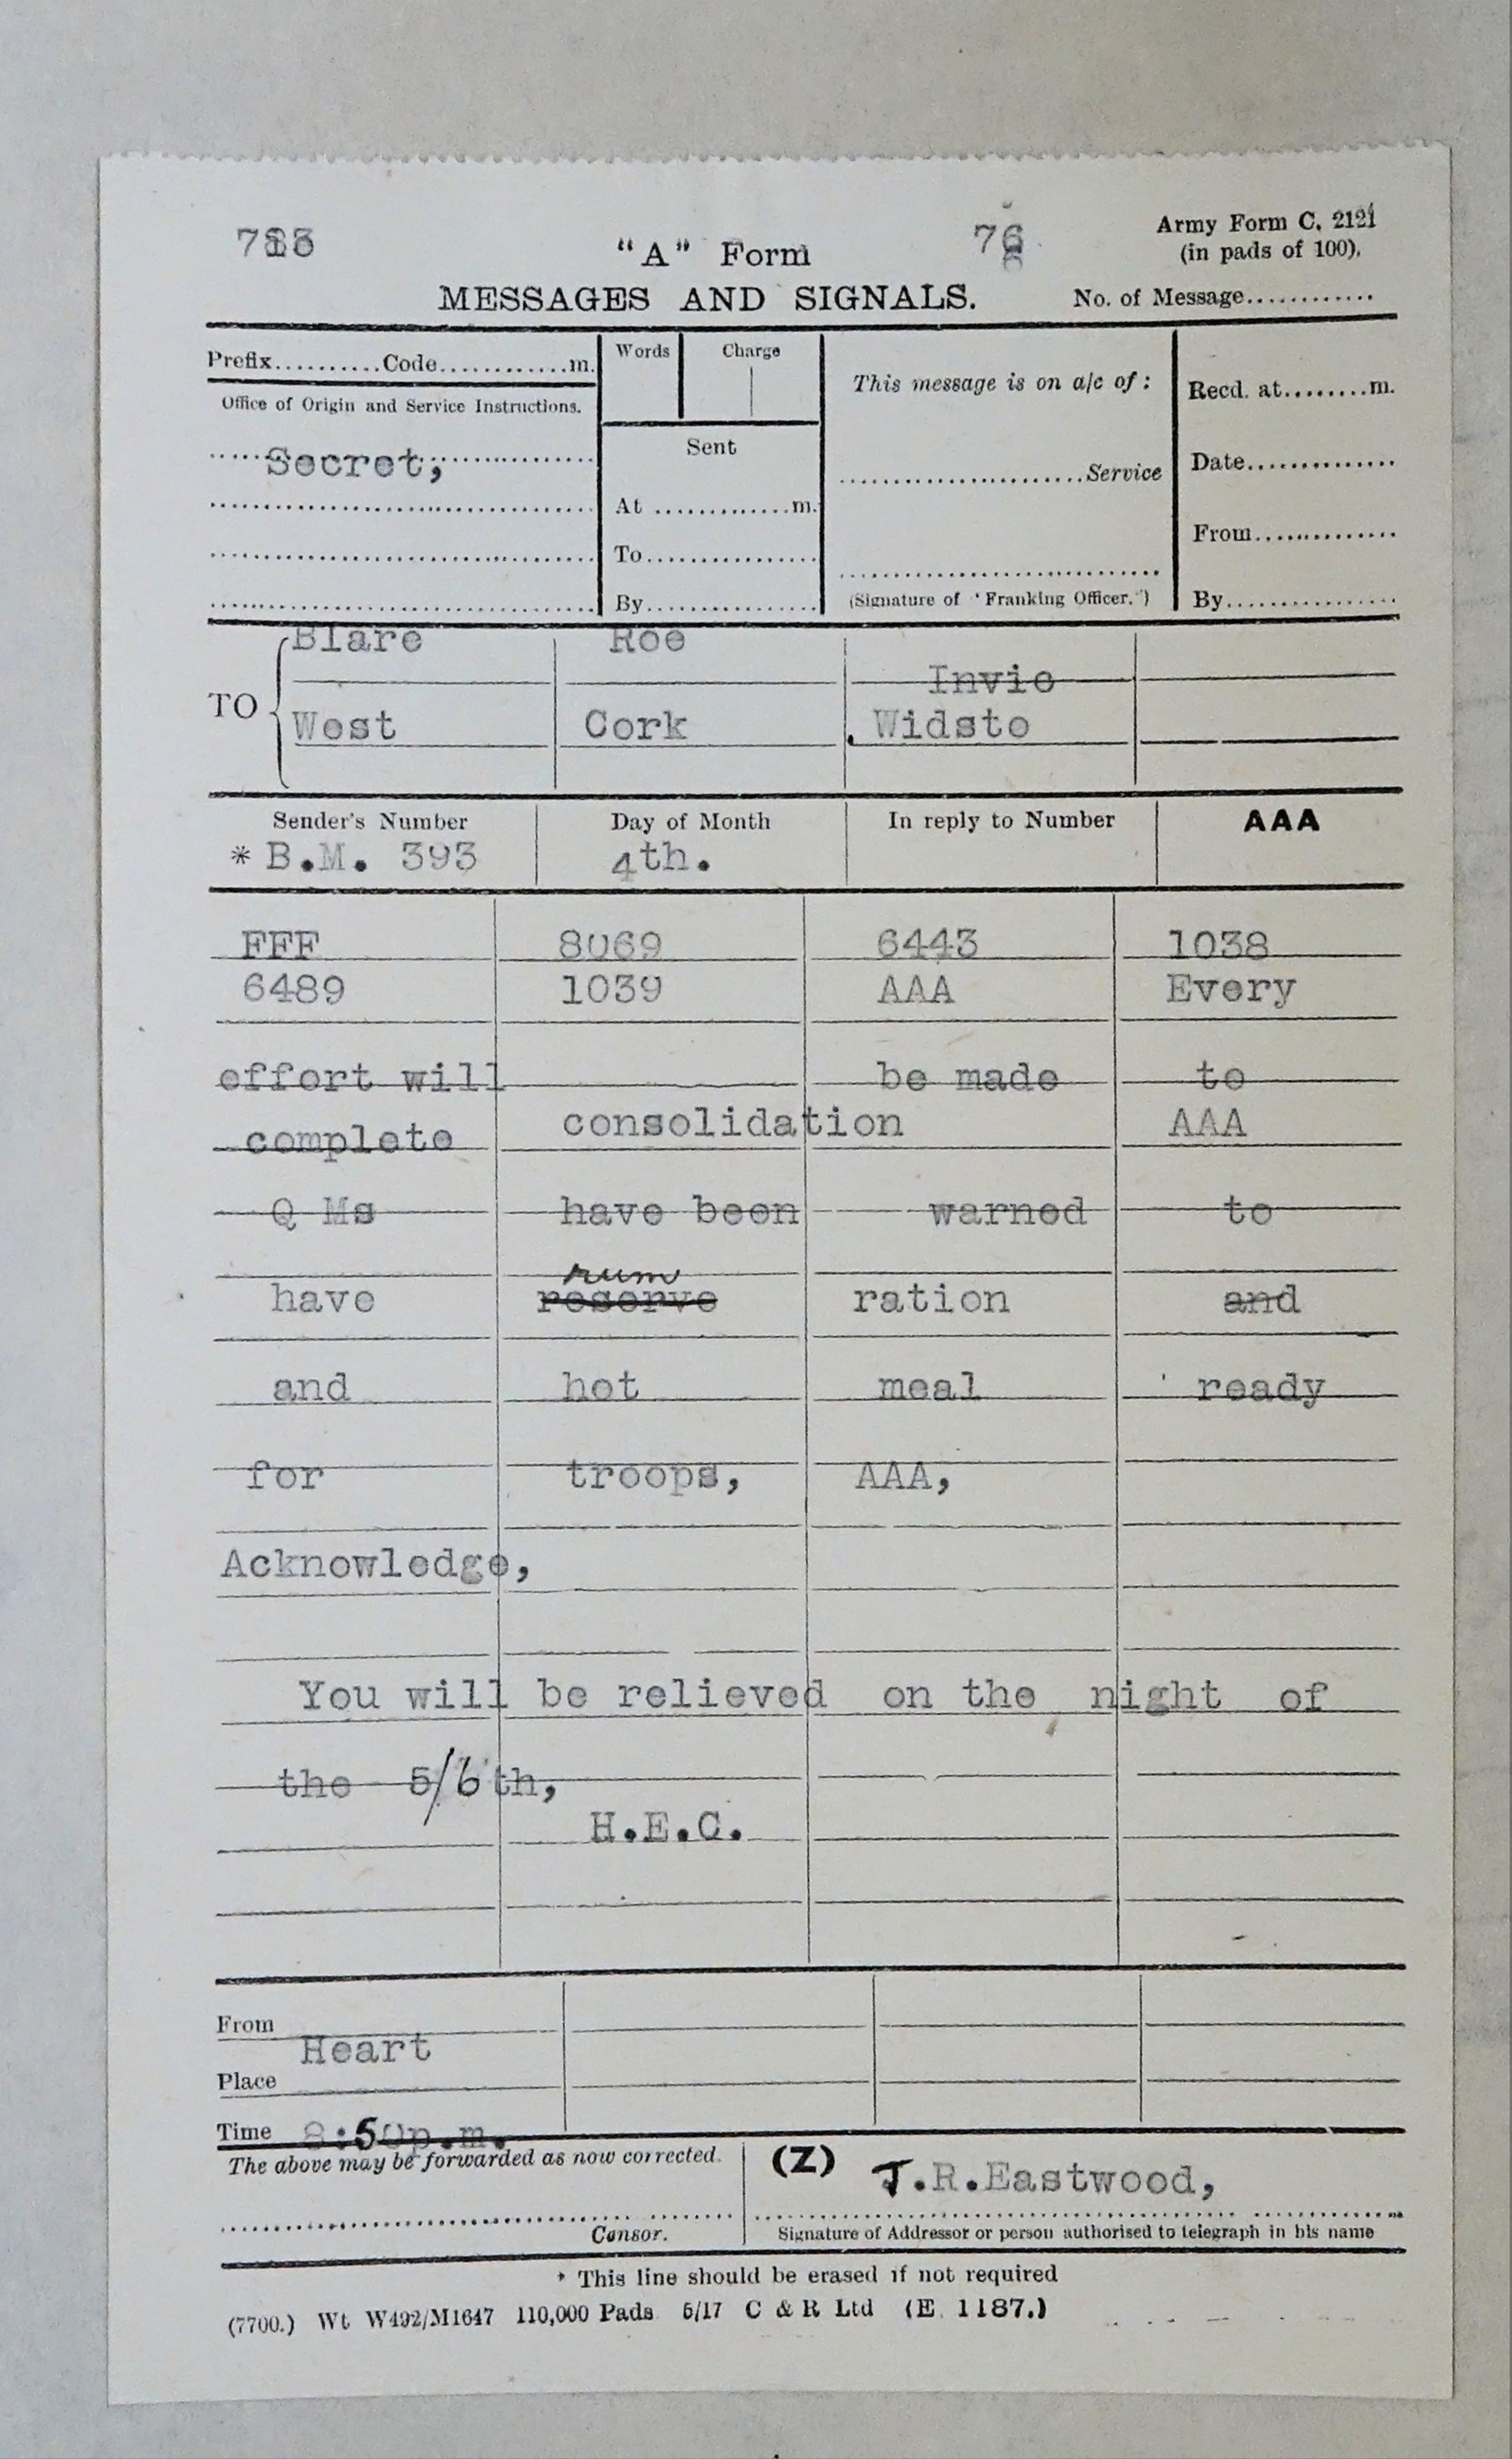 "A" Form
Army Form C. 2121
(in pads of 100).
MESSAGES AND SIGNALS.
No. of Message............
Prefix..........Code............m.
Words
Charge
This message is on a/c of :
Recd. at........m.
Office of Origin and Service Instructions.
Secret,
Sent
At .............m.
To................
By................
........................Service
(Signature of 'Franking Officer.')
Date..............
From..............
By................
TO
Blare Roe Invic
West Cork Widsto
Sender's Number Day of Month In reply to Number AAA
* B.M. 393 4th.
FFF 8069 6443 1038
6489 1039 AAA Every
effort will be made to
complete consolidation AAA
Q Ms have been warned to
rum
have reserve ration and
and hot meal ready
for troops, AAA,
Acknowledge,
You will be relieved on the night of
the 5/6th,
H.E.C.
From
Heart
Place
Time 8:50p.m.
The above may be forwarded as now corrected.
(Z) T.R.Eastwood,
Censor.
Signature of Addressor or person authorised to telegraph in his name
* This line should be erased if not required
(7700.) Wt W492/M1647 110,000 Pads 5/17 C & R Ltd (E. 1187.)